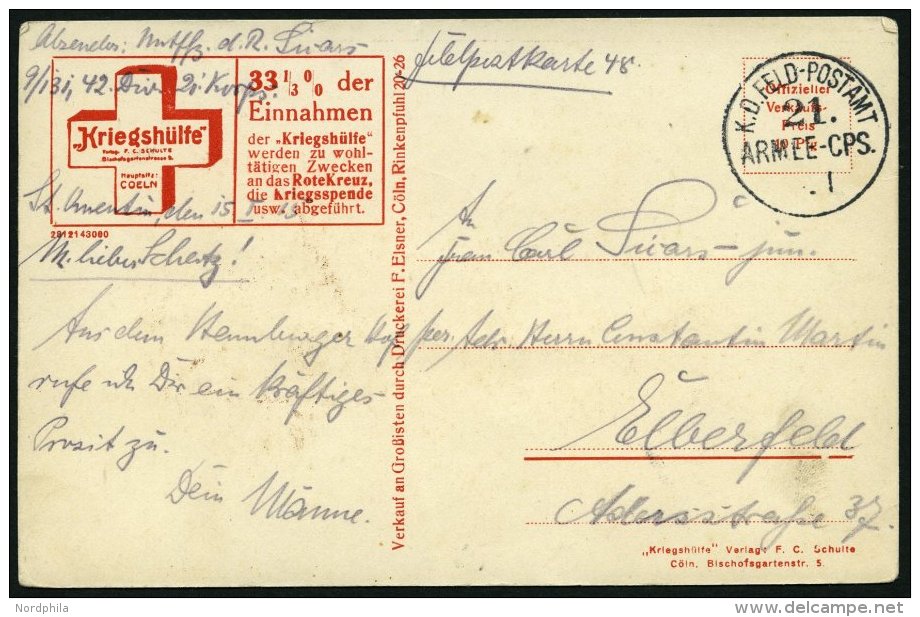 Absender: Untffz. d. R. Suars
9/131, 42. Div. 21. Korps.
Feldpostkarte 48.
"Kriegshülfe"
Verlag: F. C. SCHULTE
Bischofsgartenstrasse 5.
Hauptsitz:
COELN
33 1/3 0/0 der
Einnahmen
der „Kriegshülfe"
werden zu wohl-
tätigen Zwecken
an das Rote Kreuz,
die Kriegsspende
usw. abgeführt.
2812143000
Offizieller
Verkaufs-
Preis
10 Pfg.
K.D. FELD-POSTAMT
21.
ARMEE-CPS.
St. Quentin, den 15.
M. lieber Schatz!
Aus dem Hennburger Hof
rufe ich Dir ein kräftiges
Prosit zu.
Dein Männe.
Verkauf an Großisten durch Druckerei F. Elsner, Cöln, Rinkenpfuhl 20-26
An
Frau Carl Suars jun.
per. Adr. Herrn Constantin Martin
Elberfeld
Adersstraße 37.
„Kriegshülfe" Verlag: F. C. Schulte
Cöln, Bischofsgartenstr. 5.
Nordphila
delcampe.net